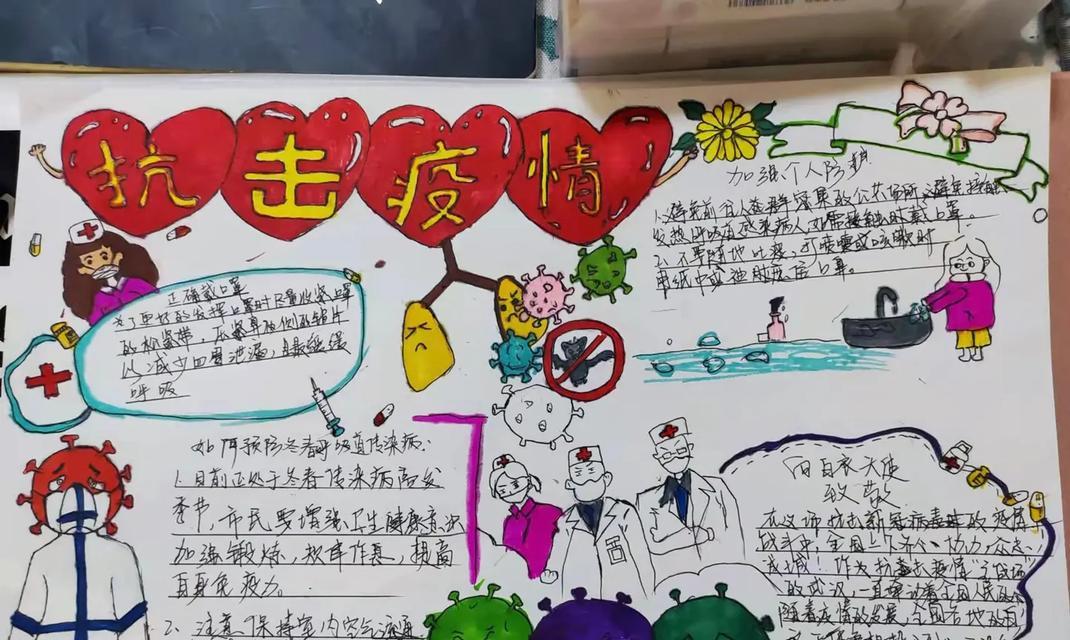 抗击疫情
加强个人防护
1、避免前往人多群密集的公共场所，避免接触
发热呼吸道感染病人，如需接触时戴口罩。
2、不要随地吐痰，打喷嚏或咳嗽时
用纸巾
口罩。
正确戴口罩
为了更好的发挥口罩时尽量收紧口罩
的松紧带，压紧鼻两侧的铝片
以减少四周泄漏，
呼吸
如何预防冬春呼吸道传染病：
1、目前正处于冬春传染病高发
季节，市民要增强卫生健康意识
加强锻炼，规律作息，提高
自身免疫力。
2、注意保持室内空气流通
向白衣天使
致敬
在这场抗击新冠病毒的疫情
战斗中，全国上下齐心协力，众志
成城！作为抗击疫情"主战场"
的武汉，一直牵动着全国人民的心
随着疫情的发展，全国各地的